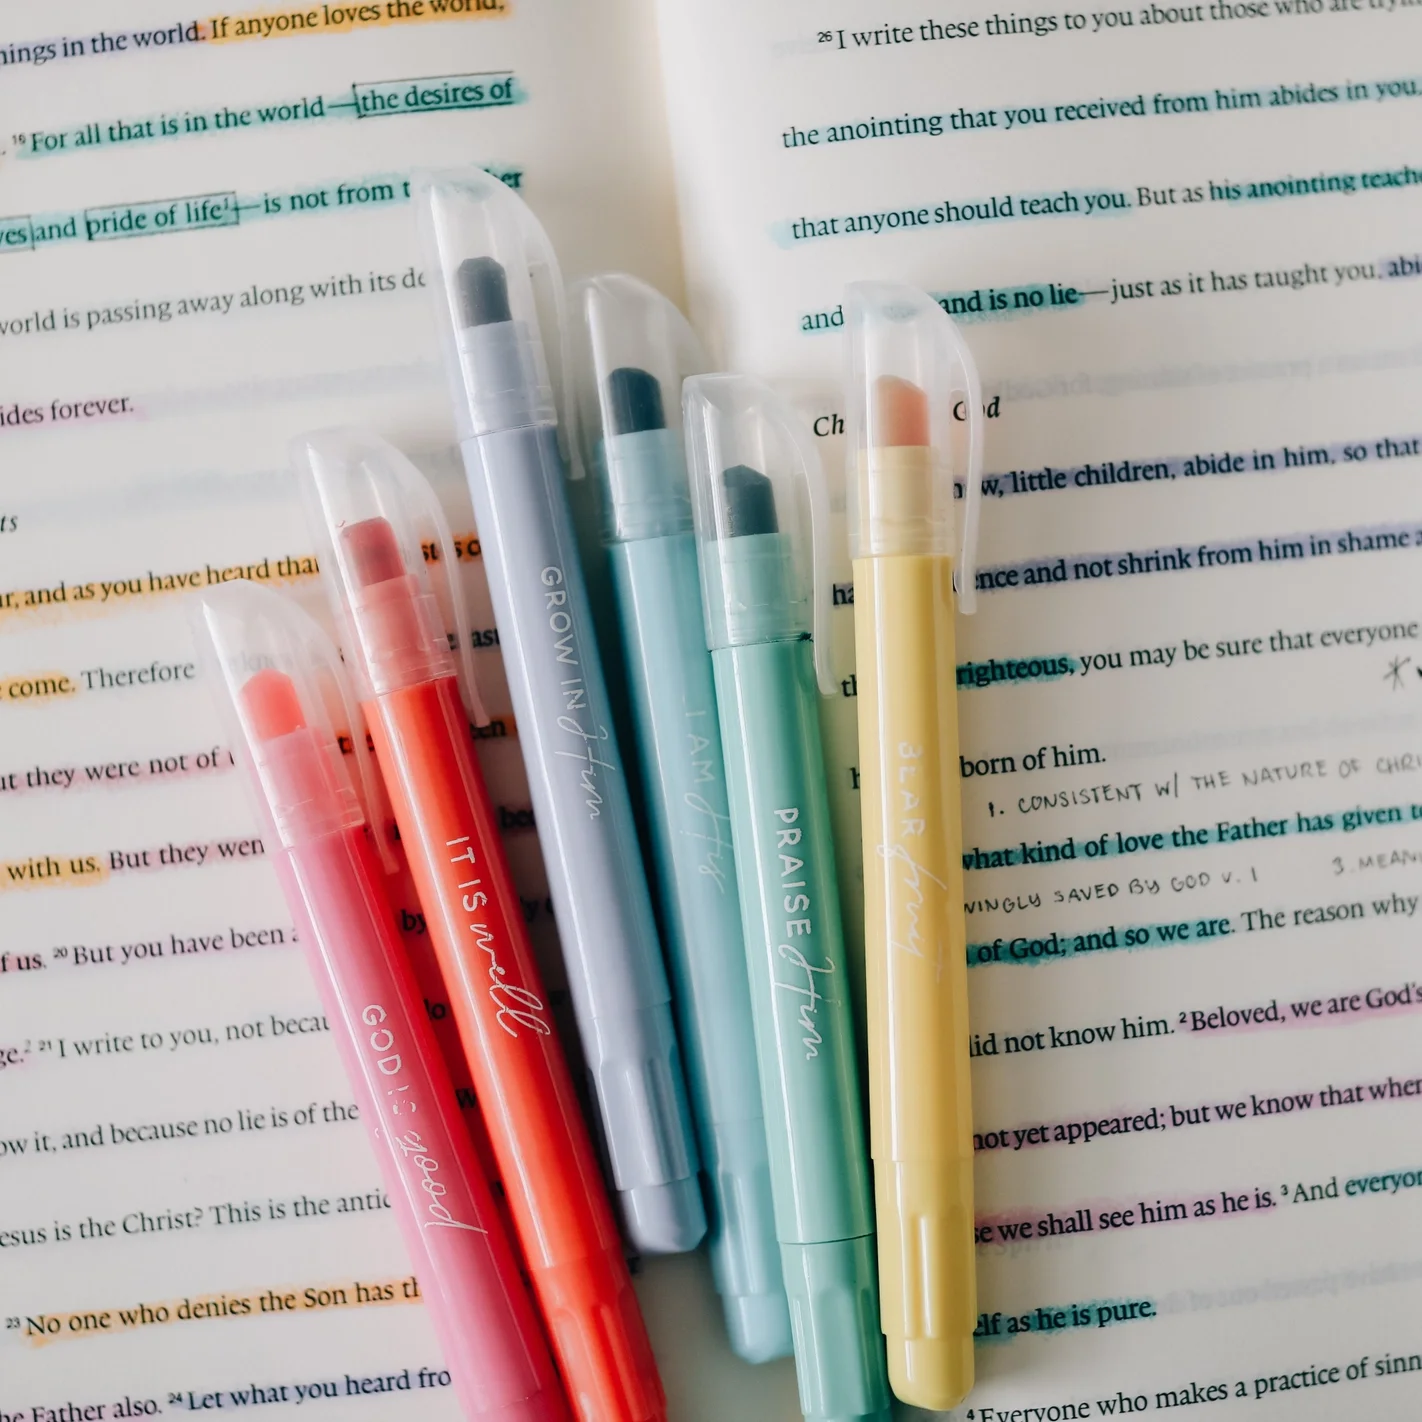 things in the world. If anyone loves the world,
. 16 For all that is in the world—the desires of
and pride of life—is not from
world is passing away along with its
forever.
and as you have heard that
come. Therefore
they were not of
with us. But they
of us. 20 But you have been
2 21 I write to you, not
it, and because no lie is of the
is the Christ? This is the
23 No one who denies the Son has
Father also. 24 Let what you heard
26 I write these things to you about those who are
the anointing that you received from him abides in you,
that anyone should teach you. But as his anointing
and and is no lie—just as it has taught you,
God
little children, abide in him, so that
and not shrink from him in shame
righteous, you may be sure that everyone
born of him.
1. CONSISTENT W/ THE NATURE OF
what kind of love the Father has given
SAVED BY GOD V. 1 3.
of God; and so we are. The reason why
did not know him. 2 Beloved, we are God's
not yet appeared; but we know that when
we shall see him as he is. 3 And
as he is pure.
4 Everyone who makes a practice of
GOD IS good
IT IS well
GROW IN Him
I AM His
PRAISE Him
BEAR fruit